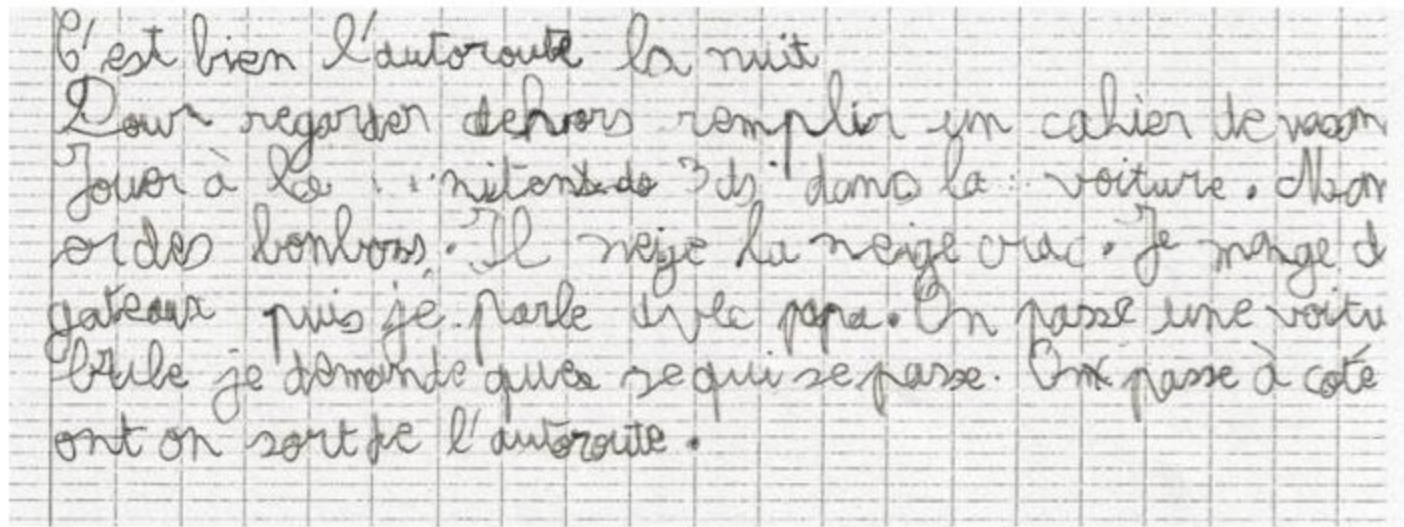 C'est bien l'autoroute la nuit
Pour regarder dehors remplir un cahier de vacan
Jouer à la nitendo 3ds dans la voiture. Man
er des bonbons. Il neije la neige crac. Je mange d
gateaux puis je parle avec papa. On passe une voitu
brule je demande ques se qui se passe. On passe à coté
ont on sort de l'autoroute.